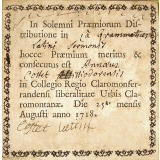 In Solemni Præmiorum Dis-
tributione in
latini Sermonis
hocce Præmium meritus &
consecutus est
in Collegio Regio Claromonfer-
randensi, liberalitate Urbis Cla-
romontanæ. Die 25ª mensis
Augusti anno 1728.